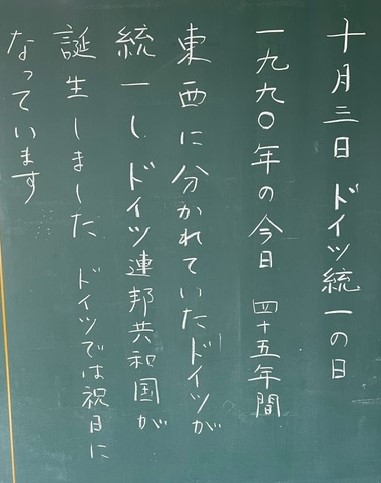 十月三日 ドイツ統一の日
一九九〇年の今日 四十五年間
東西に分かれていたドイツが
統一し、ドイツ連邦共和国が
誕生しました ドイツでは祝日に
なっています